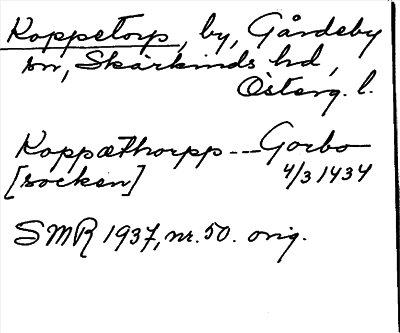 Koppetorp, by, Gårdeby
sn, Skärkinds hd,
Österg. l.
Koppæthorpp --- Gorbo
[socken] 4/3 1434
SMR 1937, nr. 50. orig.